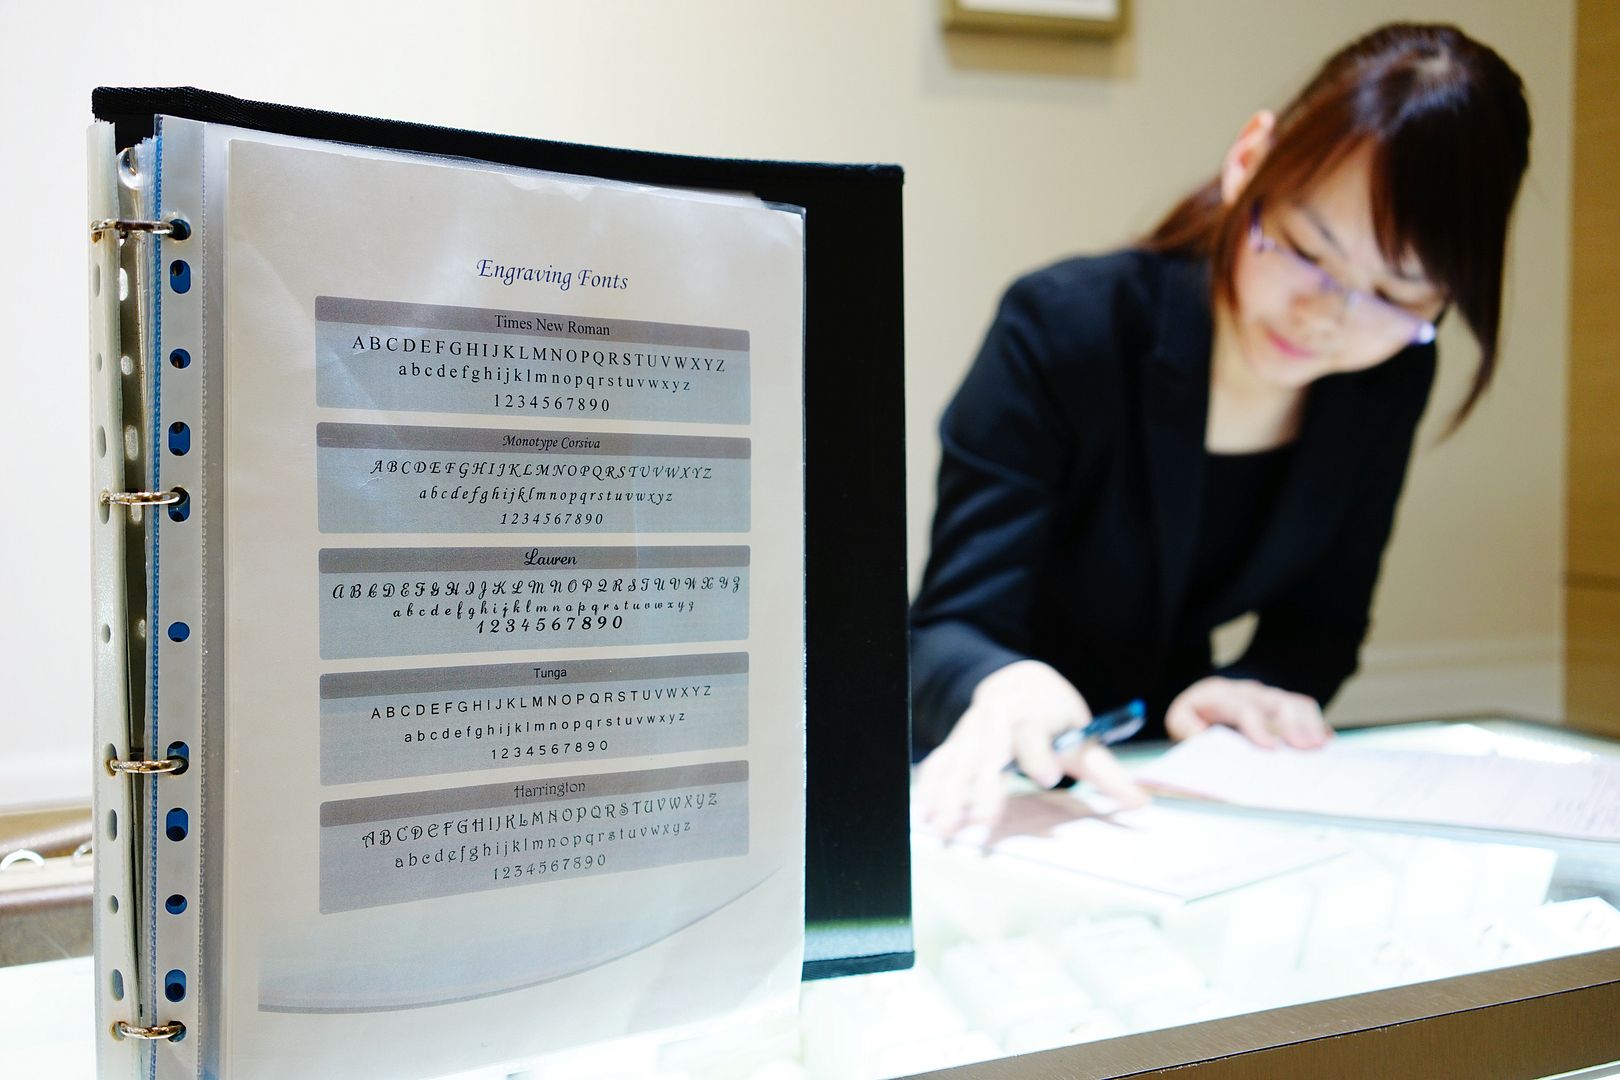 Engraving Fonts
Times New Roman
A B C D E F G H I J K L M N O P Q R S T U V W X Y Z
a b c d e f g h i j k l m n o p q r s t u v w x y z
1 2 3 4 5 6 7 8 9 0
Monotype Corsiva
A B C D E F G H I J K L M N O P Q R S T U V W X Y Z
a b c d e f g h i j k l m n o p q r s t u v w x y z
1 2 3 4 5 6 7 8 9 0
Lauren
A B C D E F G H I J K L M N O P Q R S T U V W X Y Z
a b c d e f g h i j k l m n o p q r s t u v w x y z
1 2 3 4 5 6 7 8 9 0
Tunga
A B C D E F G H I J K L M N O P Q R S T U V W X Y Z
a b c d e f g h i j k l m n o p q r s t u v w x y z
1 2 3 4 5 6 7 8 9 0
Harrington
A B C D E F G H I J K L M N O P Q R S T U V W X Y Z
a b c d e f g h i j k l m n o p q r s t u v w x y z
1 2 3 4 5 6 7 8 9 0